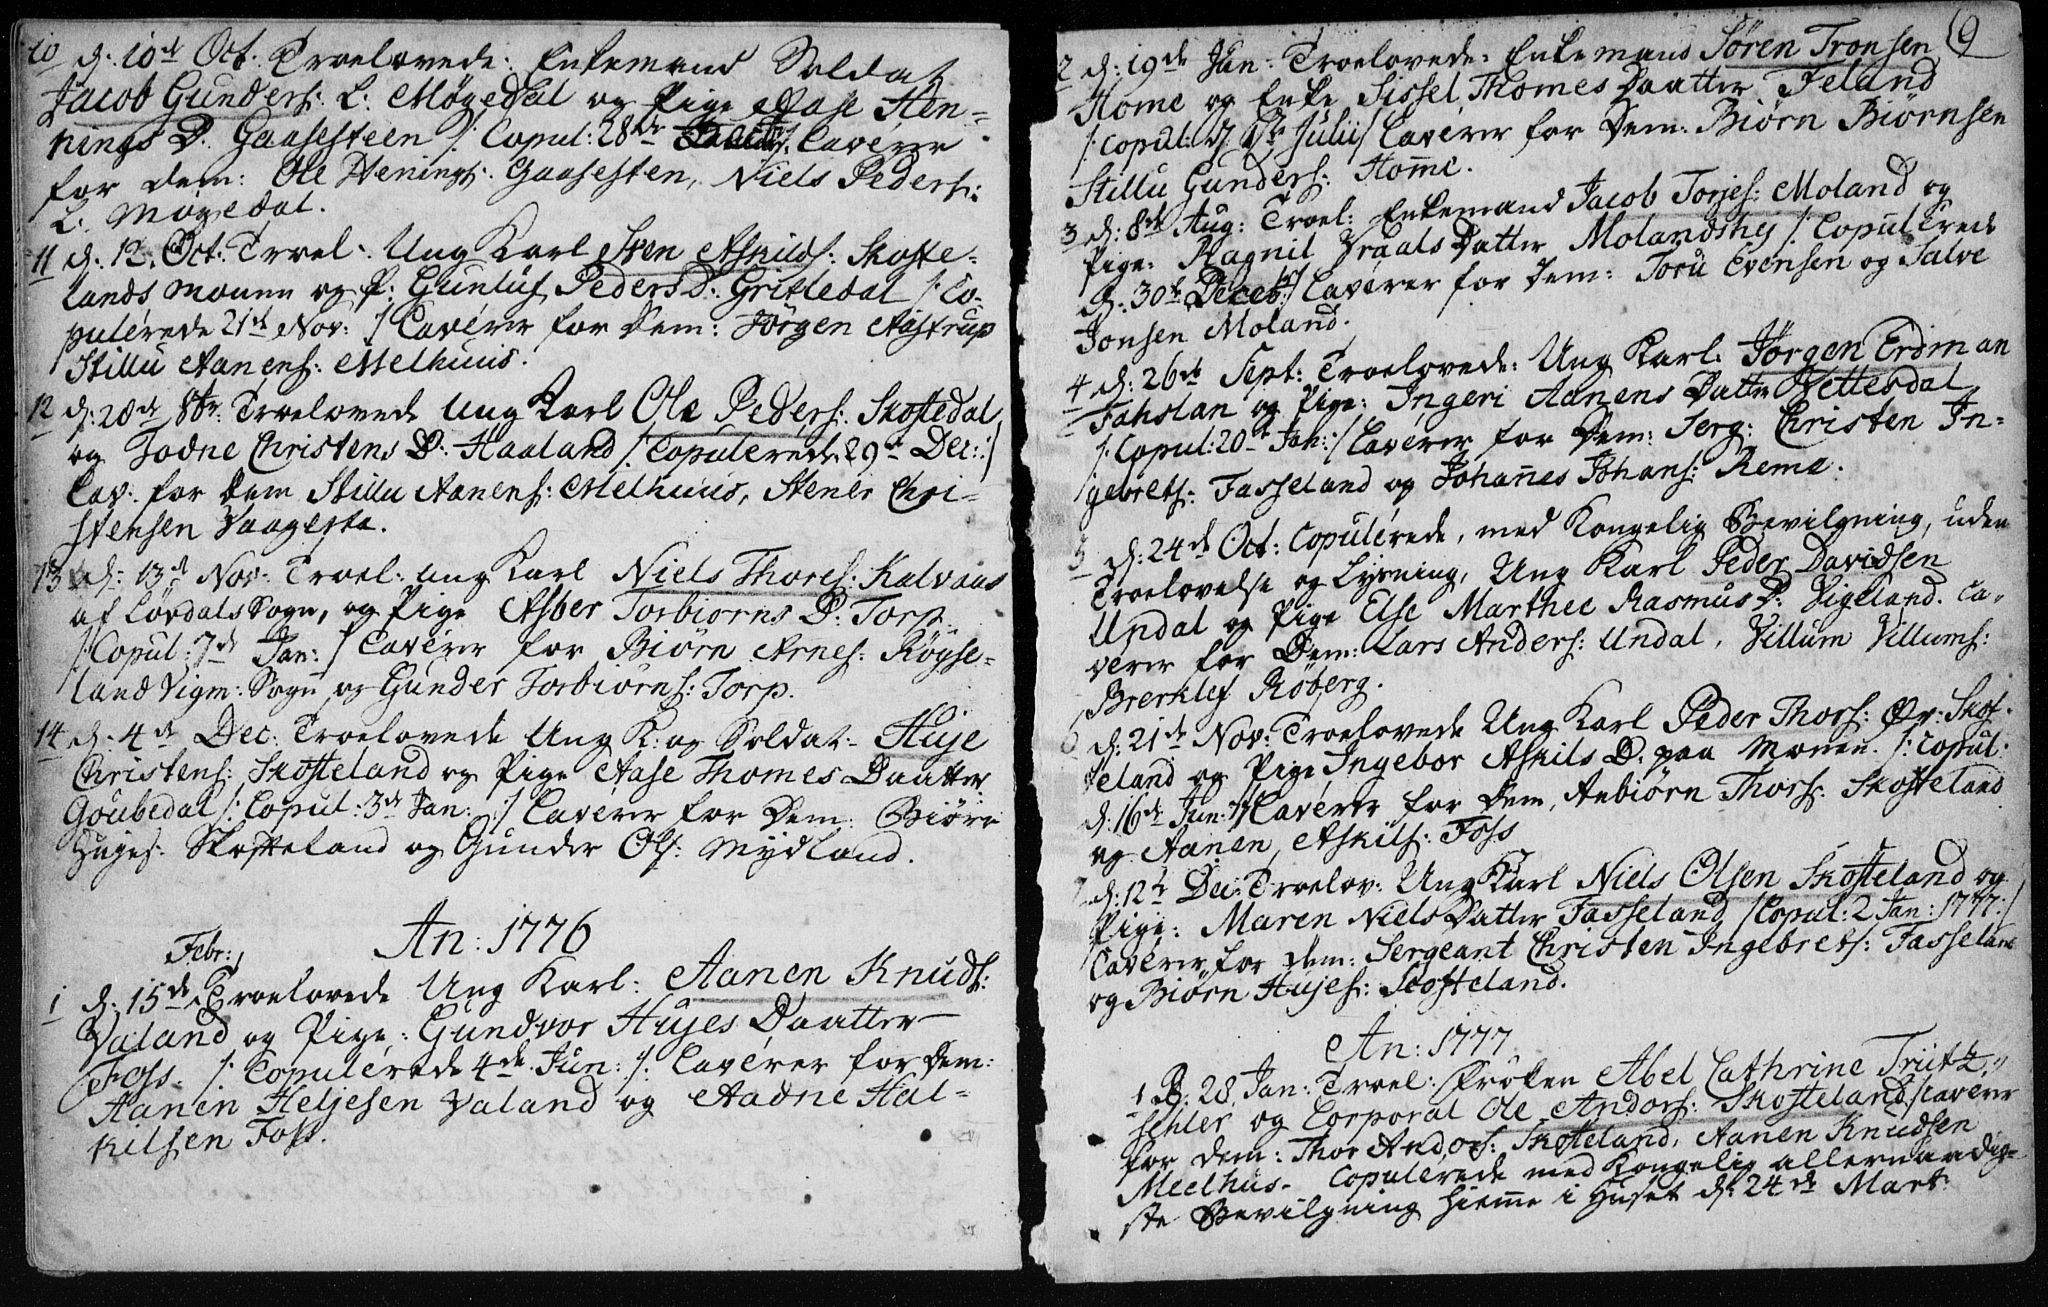 10 d. 10de Oct: Troelovede: Enkemand Soldat
Jacob Gunders: L. Møgedal og Pige Aase Hen-
nings D. Gaasesteen /: Copul: 28de Caverer
for dem: Ole Henings: Gaasesten, Niels Peders:
L. Møgedal.
11 d. 12. Oct. Troel. Ung Karl Sten Askilds: Skofte-
lands Mouen og P. Gunluf Peders D: Gritledal /: Co-
pulerede 21de Nov: / Caverer for dem: Jørgen Aastrup
Stillu Aanens: Melhuus.
12 d: 28de 8br. Troelovede Ung Karl Ole Peders: Skoftedal
og Todne Christens D: Haaland /: Copulerede 29de Dec: /
Cav: for dem Stillu Aanens: Melhuus, Stener Chri-
stensen Vaagesta.
13 d: 13d Nov: Troel: ung Karl Niels Thores: Kalvaas
af Løvdals Sogn, og Pige Asber Torbiørns D: Torp
/: Copul: 7de Jan: / Caverer for Biørn Arnes: Røyse-
land Vigm: Sogn og Gunder Torbiørns: Torp.
14 d. 4de Dec: Troelovede Ung K: og Soldat- Huje
Christens: Skofteland og Pige Aase Thomes Daatter
Goubedal /: Copul: 3de Jan: :/ Caverer for dem: Biørn
Hujes: Skofteland og Gunder Ols: Mydland.
An: 1776
Febr:
1 d. 15de Troelovede Ung Karl: Aanen Knuds:
Valand og Pige: Gundvor Hujes Daatter
Foss. /: Copulerede 4de Jun: /: Caverer for dem:
Aanen Heljesen Valand og Aadne Hal-
kilsen Foss.
9
2 d: 19de Jan: Troelovede: Enkemand Søren Tronsen
Home og Enke Sissel Thomes Daatter Feland
/: Copul: d 1ste Julii / Caverer for dem: Biørn Biørnsen
Stillu Gunders: Home.
3 d: 8de Aug: Troel: Enkemand Jacob Torjes: Moland og
Pige: Ragnil Vraals Datter Molandshej /: Copulerede
d: 30te Decebr: / Caverer for dem: Toru Evensen og Salve
Jonsen Moland.
4 d: 26de Sept: Troelovede: Ung Karl: Jørgen Erdman
Fahslan og Pige: Ingeri Aanens Datter Vettesdal
/: Copul: 20de Jan: / Caverer for dem: Serg: Christen In-
gebrets: Fasseland og Johannes Johans: Reme.
5 d: 24de Oct: Copulerede, med Kongelig Bevilgning, uden
Troelovelse og Lysning, Ung Karl Peder Davidsen
Undal og Pige Else Marthee Rasmus D: Vigeland. Ca-
verer for dem: Lars Anders: Undal, Villum Villums:
Brerklef Røberg.
6 d: 21de Nov: Troelovede Ung Karl Peder Thors: Øv: Skof-
teland og Pige Ingebor Askils D. paa Mouen. /: Copul:
d: 16de Jun: / Caverer for dem, Anbiørn Thors: Skofteland
og Aanen Askils: Foss
7 d: 12te Dec: Troelov: Ung Karl Niels Olsen Skofteland og
Pige: Maren Niels Datter Fasseland /: Copul: 2 Jan: 1777: /
Caverer for dem: Sergeant Christen Ingebrets: Fasseland
og Biørn Hujes: Scofteland.
An: 1777
1 d. 28 Jan: Troel: Frøken Abel Cathrine Trütz-
schler og Corporal Ole Andors: Skofteland / Caverer
for dem: Thor Andors: Skofteland, Aanen Knudsen
Meelhus. Copulerede med Kongelig allernaadig-
ste Bevilgning hieme i Huset d: 24de Mart.